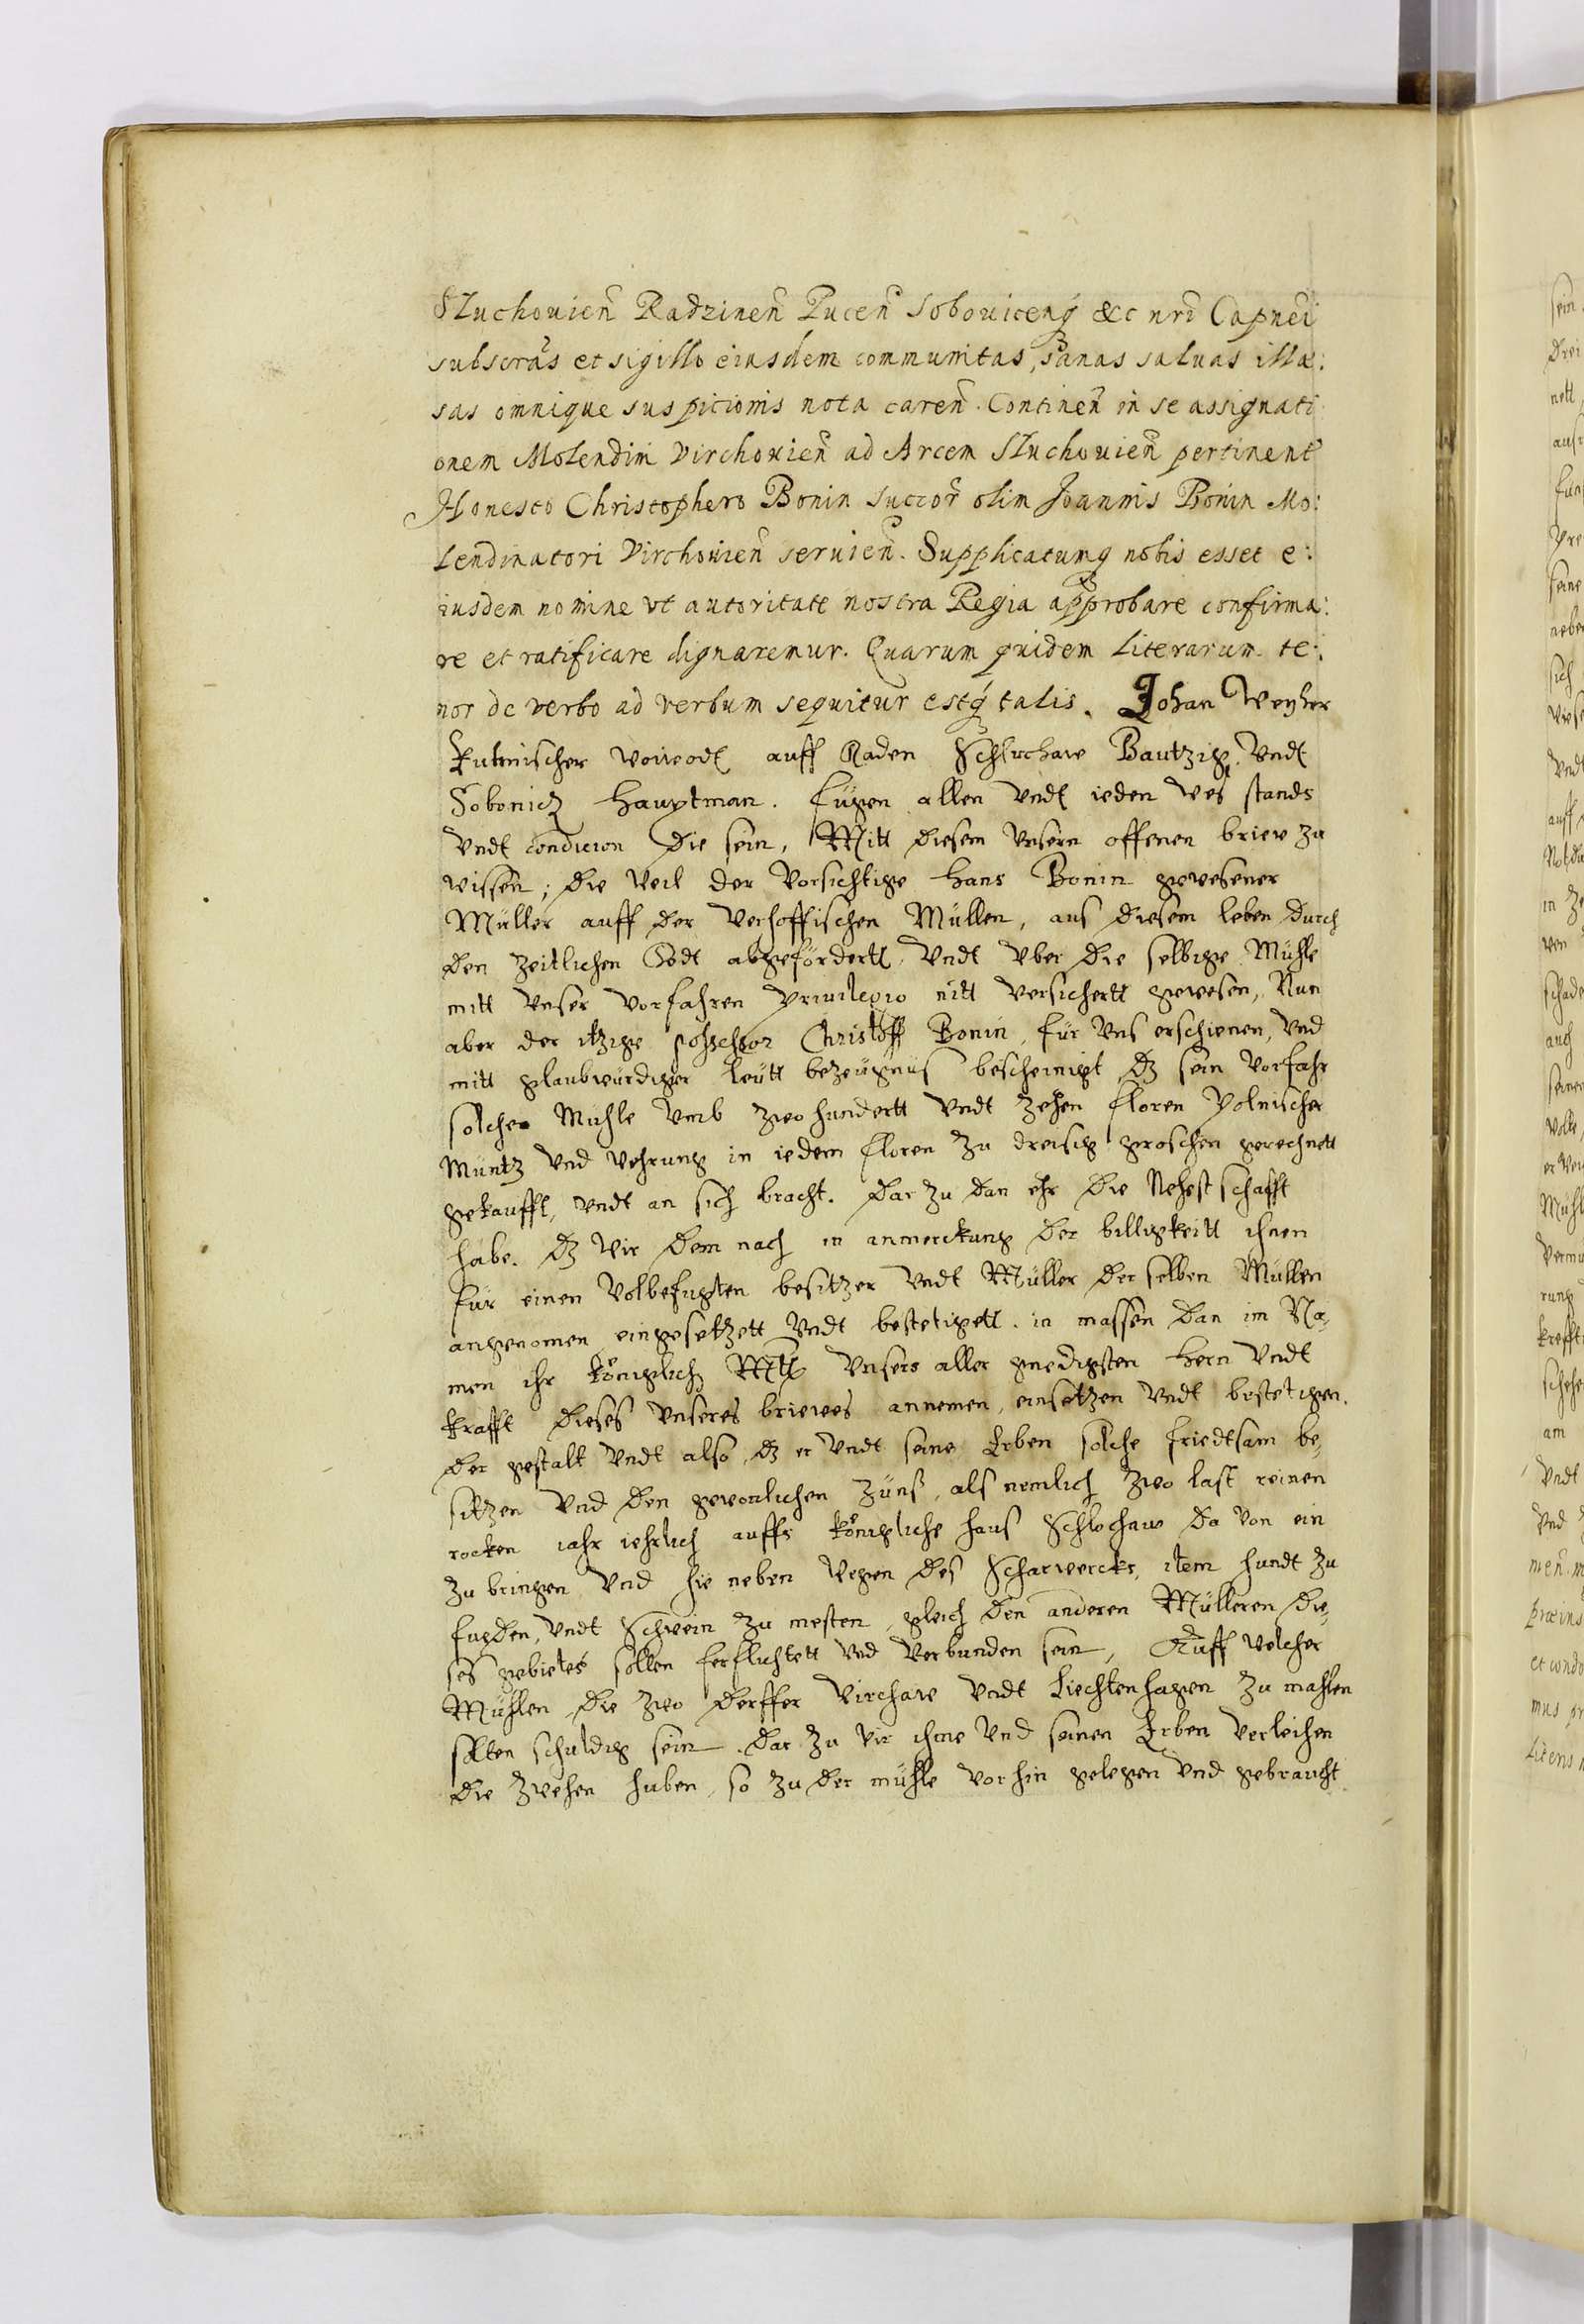 Sluchouien̄ Radzinen̄ Pucen̄ Soboviceńq &c nr̄i Capnei
subscras et sigillo eiusdem communitas, sanas saluas illæ:
sas omnique suspicionis nota caren̄. Continen̄ in se assignati
onem Molendini Virchouien̄ ad Arcem Sluchouien̄ pertinent
Honesto Christophero Bonin succor̄ olim Joannis Bonin Mo:
lendinatori Virchouien̄ seruien̄. Supplicatumq nobis esset e:
iusdem nomine vt autoritate nostra Regia approbare confirma:
re et ratificare dignaremur. Quarum quidem literarum te:
nor de verbo ad verbum sequitur estq́ talis. Johan Weyher
Kulmischer Woiwodt auff Raden Schluchaw Bautzig Vndt
Sobonicz Hauptman. Fügen allen Vndt ieden wes stands
Vndt condicion die sein, Mitt diesem Vnsern offenen briew zu
wissen; die weil der Vorsichtige Hans Bonin gewesener
Müller auff der Verhoffischen Müllen, aus diesem leben durch
den zeitlichen Todt abgefördertt, Vndt Vber die selbige Mühle
mitt Vnser Vorfahren Priuilegio nitt Versichertt gewesen, Nun
aber der itzige possessor Christoff Bonin, für Vns erschienen, Vnd
mitt glaubwürdiger leütt bezeügnüs bescheinigt dz sein Vorfahr
solche Muhle Vmb zwo hundertt Vndt zehen floren Polnischer
Müntz Vnd Wehrung in iedem floren zu dreisig groschen gerechnett
gekaufft, Vndt an sich bracht. Dar zu dan ehr die Nehest schafft
habe. dz wir dem nach in anmerckung der billigkeitt ihnen
für einen Volbefugten besitzer Vndt Müller der selben Müllen
angenomen eingesetzett Vndt bestetigett. in massen dan im Na,
men ihr königlich Mtt Vnsers aller gnedigsten Hern Vndt
krafft dieses Vnseres briewes annemen, einsetzen Vndt bestetigen.
der gestalt Vndt also, dz er Vndt seine Erben solche friedtsam be,
sitzen Vnd den gewonlichen Zünß, als nemlich zwo last reinen
rocken iahr iehrlich auffs königliche haus Schlochaw da Von ein
zu bringen Vnd hie neben wegen des Scharwercks, item hundt zu
fugden, Vndt Schwein zu mesten, gleich den anderen Mülleren die,
ses gebietes sollen ferflichtett Vnd Verbunden sein, Auff welcher
Mühlen die zwo derffer Virchaw Vndt Liechtenhagen zu mahlen
solten schuldig sein. Dar zu wir ihme Vnd seinen Erben Verleihen
die zwehen huben, so zu der mühle Vorhin gelegen Vnd gebraucht